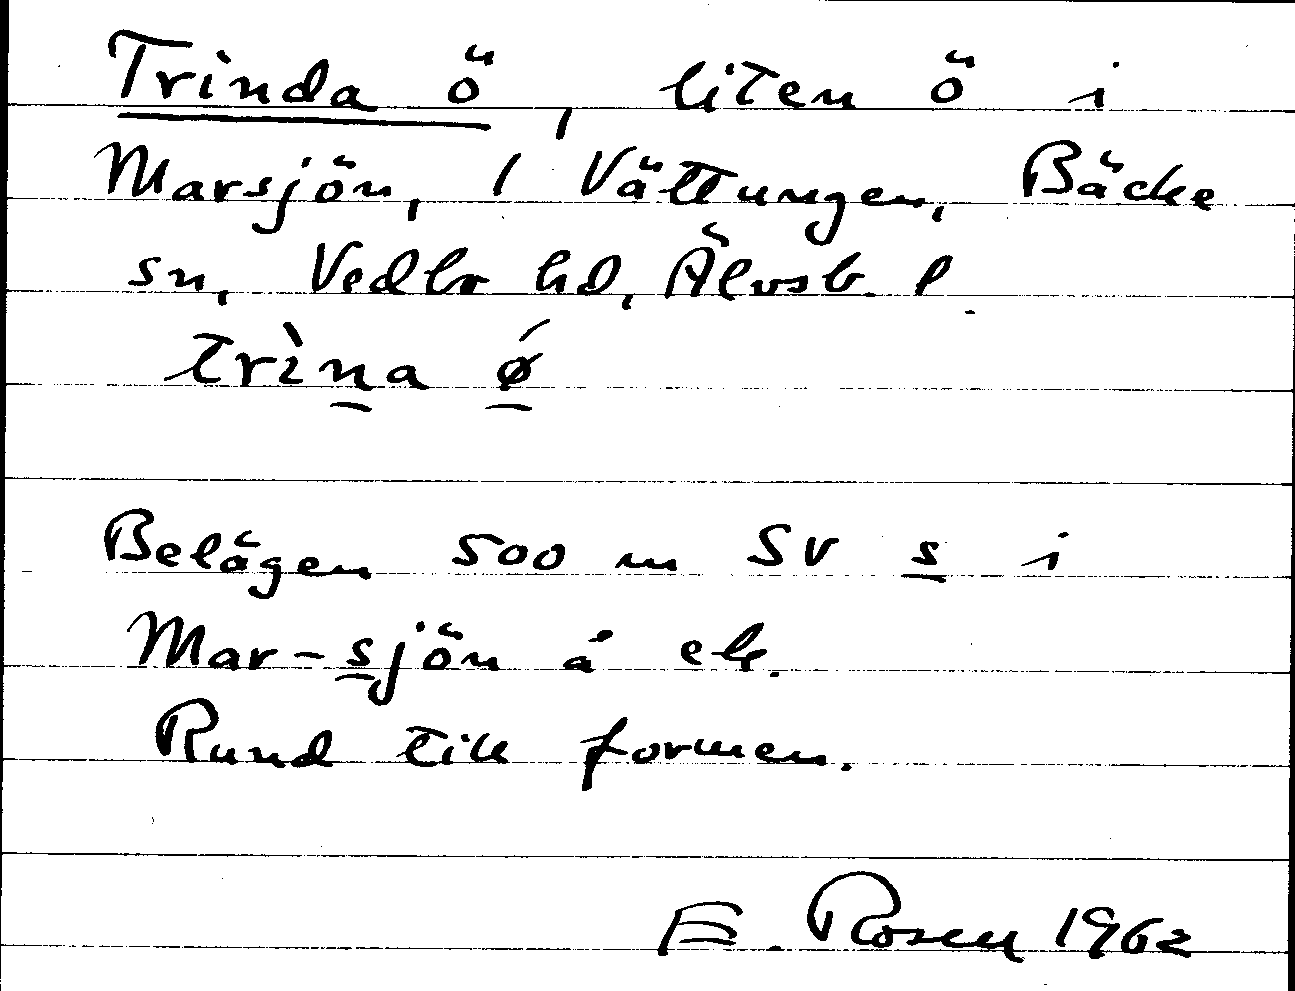 Trinda ö, liten ö i
Marsjön, 1 Vättungen, Bäcke
sn, Vedbo hd, Älvsb. l.
trìna ǿ
Belägen 500 m SV s i
Mar-sjön å ek.
Rund till formen.
E. Rosen 1962